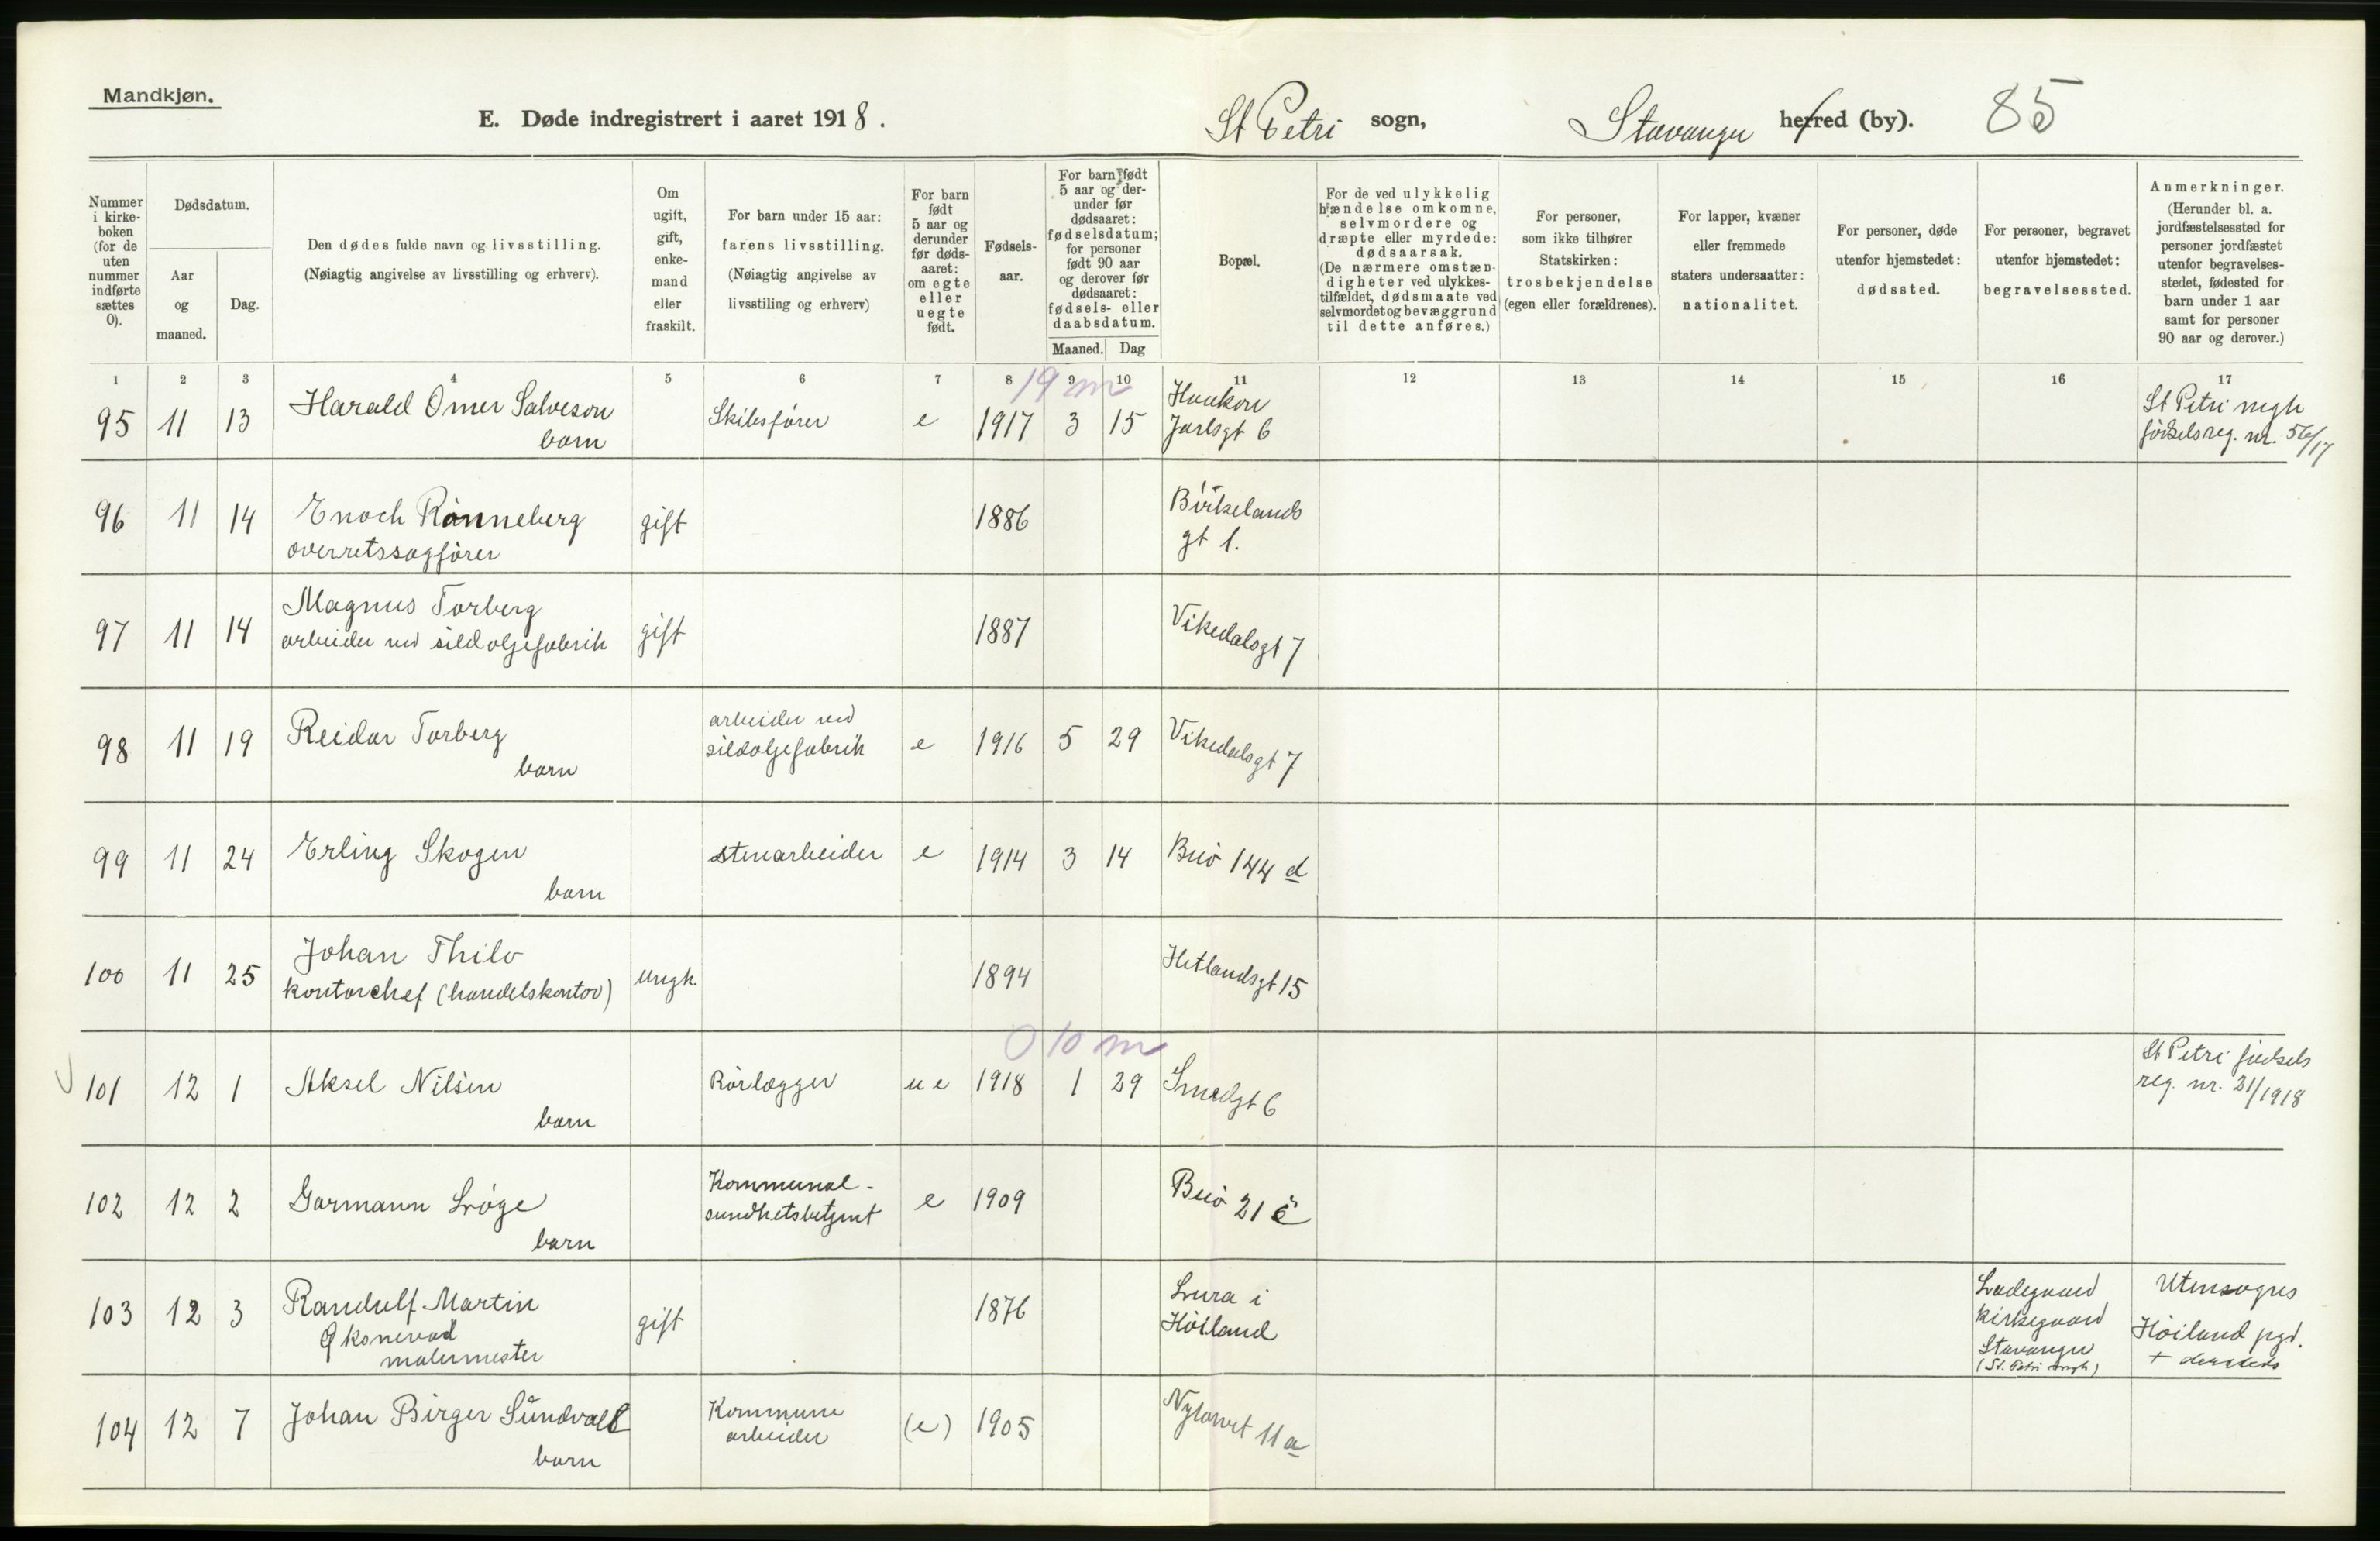 Mandkjøn.
E. Døde indregistrert i aaret 1918.
St Petri sogn, Stavanger herred (by). 85
Nummer i kirke-boken (for de uten nummer indførte sættes 0).
Dødsdatum.
Aar og maaned.
Dag.
Den dødes fulde navn og livsstilling.
(Nøiagtig angivelse av livsstilling og erhverv).
Om ugift, gift, enke-mand eller fraskilt.
For barn under 15 aar:
farens livsstilling.
(Nøiagtig angivelse av
livsstiling og erhverv)
For barn født 5 aar og derunder før døds-aaret: om egte eller uegte født.
Fødsels-aar.
For barn født 5 aar og der-under før dødsaaret: fødselsdatum; for personer født 90 aar og derover før dødsaaret: fødsels- eller daabsdatum.
Maaned. Dag
Bopæl.
For de ved ulykkelig hændelse omkomne, selvmordere og dræpte eller myrdede: dødsaarsak.
(De nærmere omstæn-digheter ved ulykkes-tilfældet, dødsmaate ved selvmordet og bevæggrund til dette anføres.)
For personer, som ikke tilhører Statskirken: trosbekjendelse (egen eller forældrenes).
For lapper, kvæner eller fremmede staters undersaatter: nationalitet.
For personer, døde utenfor hjemstedet: dødssted.
For personer, begravet utenfor hjemstedet: begravelsessted.
Anmerkninger.
(Herunder bl. a. jordfæstelsessted for personer jordfæstet utenfor begravelses-stedet, fødested for barn under 1 aar samt for personer 90 aar og derover.)
1 2 3 4 5 6 7 8 9 10 11 12 13 14 15 16 17
19 m
95 11 13 Harald Omer Salveson
barn
Skibsfører e 1917 3 15 Haakon
Jarlsgt 6
St Petri mgh
fødselsreg. nr. 56/17
96 11 14 Enoch Rønneberg
overretssagfører
gift 1886 Birkelands
gt 1.
97 11 14 Magnus Torberg
arbeider ved sildoljefabrik
gift 1887 Vikedalsgt 7
98 11 19 Reidar Torberg
barn
arbeider ved
sildoljefabrik
e 1916 5 29 Vikedalsgt 7
99 11 24 Erling Skogen
barn
stenarbeider e 1914 3 14 Buø 144 d
100 11 25 Johan Thilo
kontorchef (handelskontor)
ungk. 1894 Hetlandsgt 15
0 10 m
101 12 1 Aksel Nilsen
barn
Rørlægger u e 1918 1 29 Smedgt 6
St Petri fødsels
reg. nr. 21/1918
102 12 2 Garmann Lröge
barn
Kommunal-
sundhetsbetjent
e 1909 Buø 21 c
103 12 3 Randulf Martin
Øksnevad
malermester
gift 1876 Lura i
Høiland
Ladegaard
kirkegaard
Stavanger
(St. Petri mgh)
Utensogns
Høiland pgd.
+ dersteds
104 12 7 Johan Birger Sundvall
barn
Kommune
arbeider
(e) 1905 Nytorvet 11 a